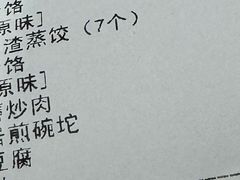 饹
原味]
渣蒸饺(7个)
饹
原味]
炒肉
煎碗坨
豆腐